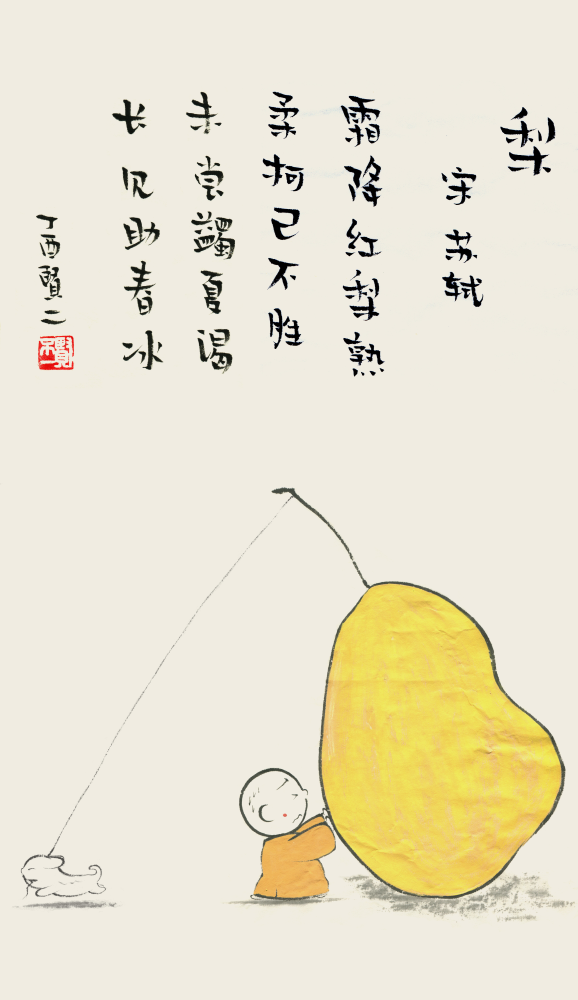 梨
宋 苏轼
霜降红梨熟
柔柯已不胜
未尝蠲夏渴
长见助春冰
丁酉贤二